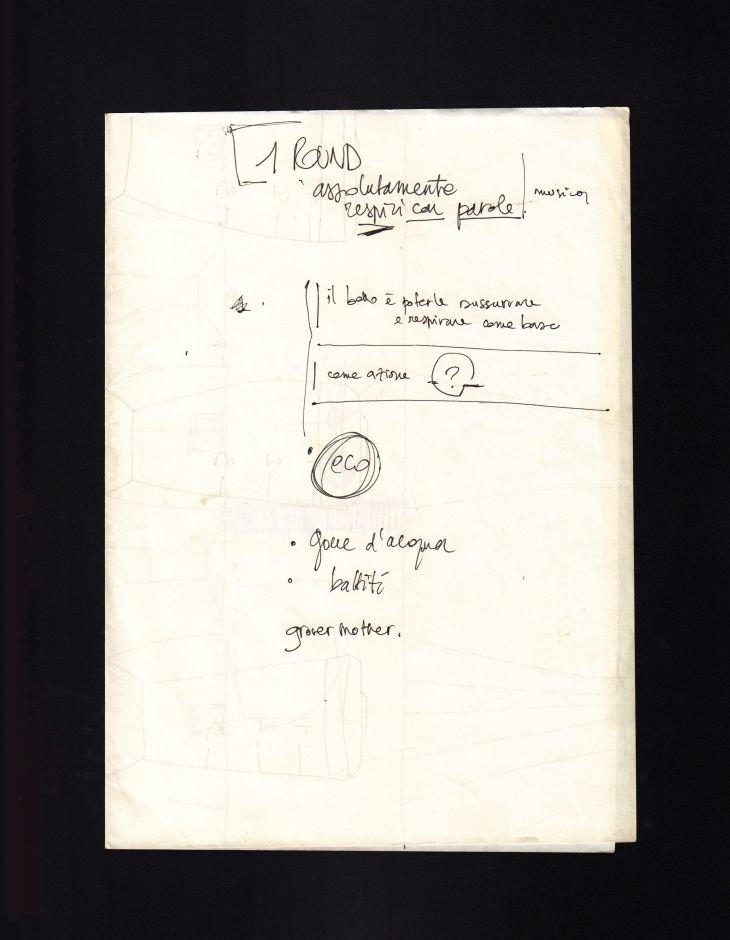 1 ROUND
assolutamente
respiri con parole
musica
il bello è poterle sussurrare
e respirare come base
come azione ?
eco
• gocce d'acqua
• battiti
mother.